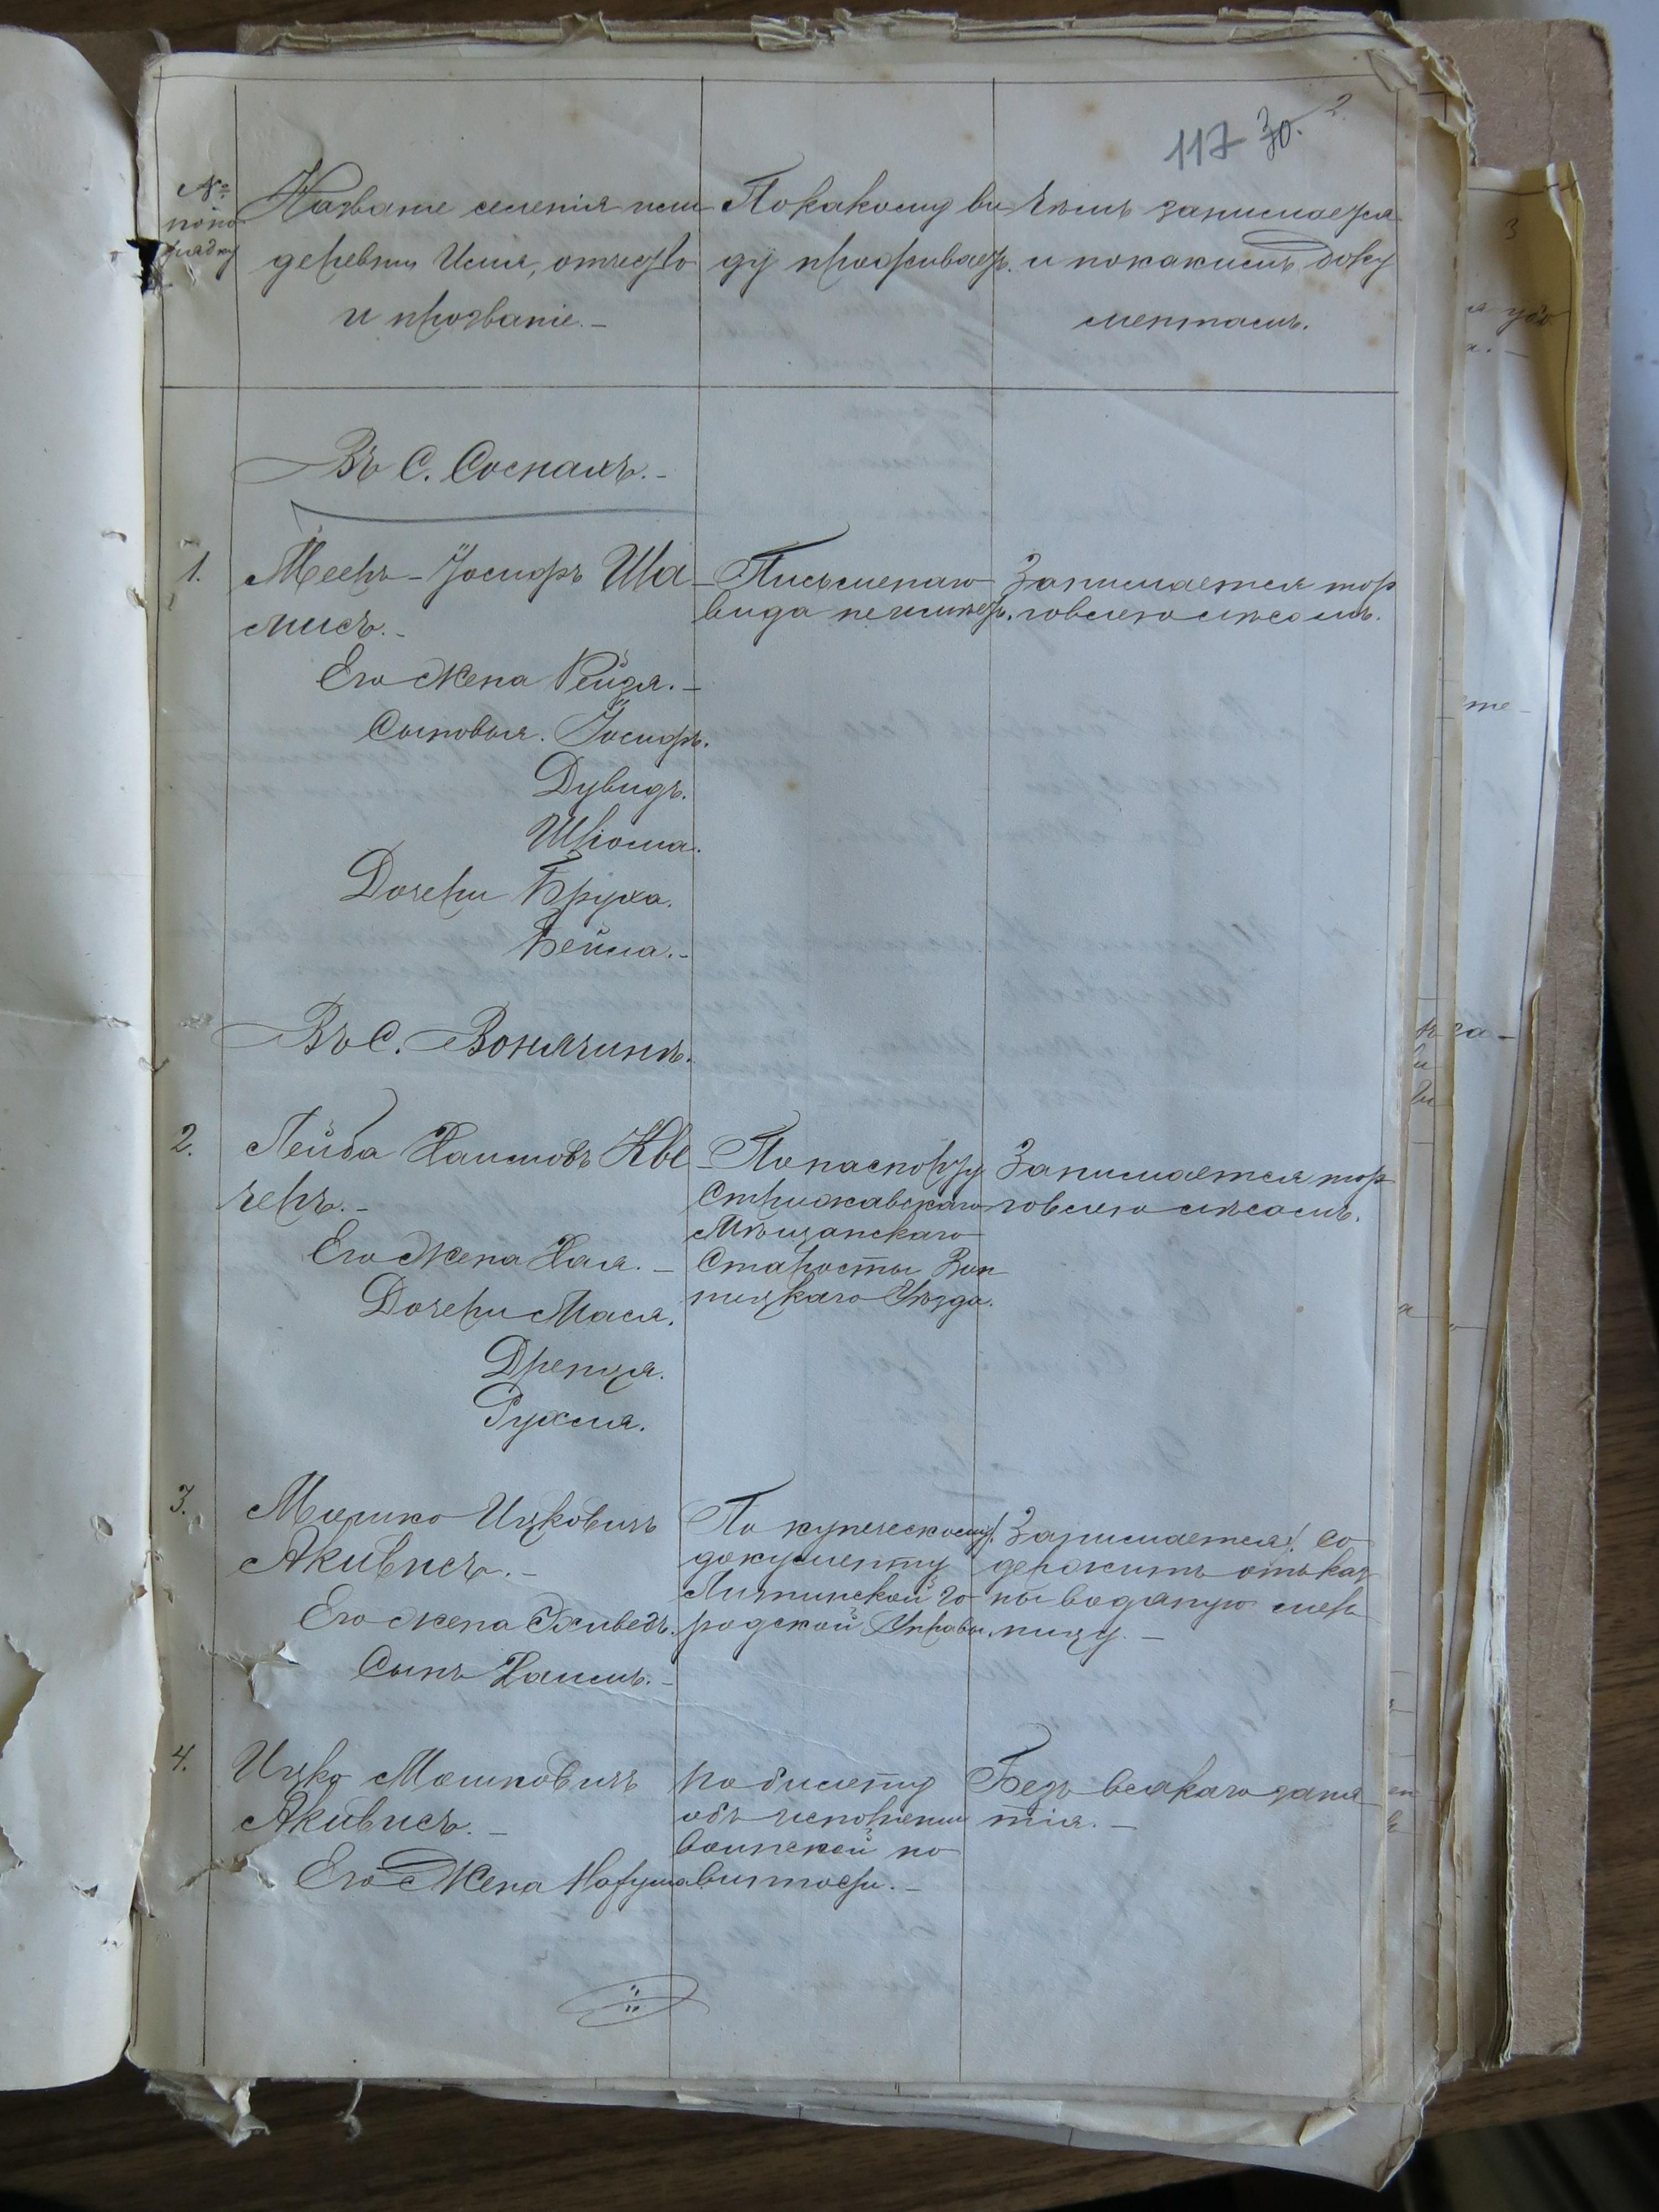 117 30. 2.
№
по по
рядку
Названіе селенія или
деревни Имя, отчество
и прозваніе.-
По какому ви
ду проживаетъ.
Чѣмъ занимается
и по какимъ доку
ментамъ.
Въ С. Соснахъ.-
1.
Мееръ-Іосифъ Ша
лисъ.-
Его Жена Рейзя.-
Сыновья. Іосифъ.
Дувидъ.
Шіома.
Дочери Бруха.
Бейла.-
Письменнаго
вида не имѣетъ.
Занимается тор
говлею лѣсомъ.
Въ С. Вонячинѣ.
2.
Лейба Хаимовъ Кве
черъ.-
Его Жена Хая.-
Дочери Мася.
Дренця.
Рухля.
По паспорту
Стрижавскаго
Мѣщанскаго
Старосты Вин
ницкаго Уѣзда.
Занимается тор
говлею лѣсомъ.
3.
Мошко Ицковичъ
Акивисъ.-
Его жена Эживедъ.
Сынъ Хаимъ.-
По купеческому
документу
Литинской Го
родской Управы.
Занимается. со
держитъ отъ каз
ны водяную мель
ницу.-
4.
Ицко Мошковичъ
Акивисъ.-
Его Жена
по билету
объ исполненіи
воинской по
винности.-
Безъ всякаго заня
тія.-